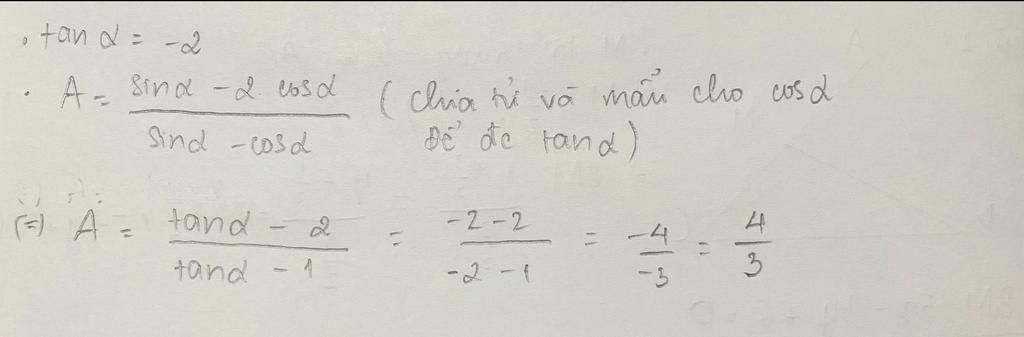 . tan α = -2
. A = (sinα - 2 cosα) / (sinα - cosα) ( chia tử và mẫu cho cosα
Để đc tanα )
(=) A = (tanα - 2) / (tanα - 1) = (-2 - 2) / (-2 - 1) = -4 / -3 = 4 / 3